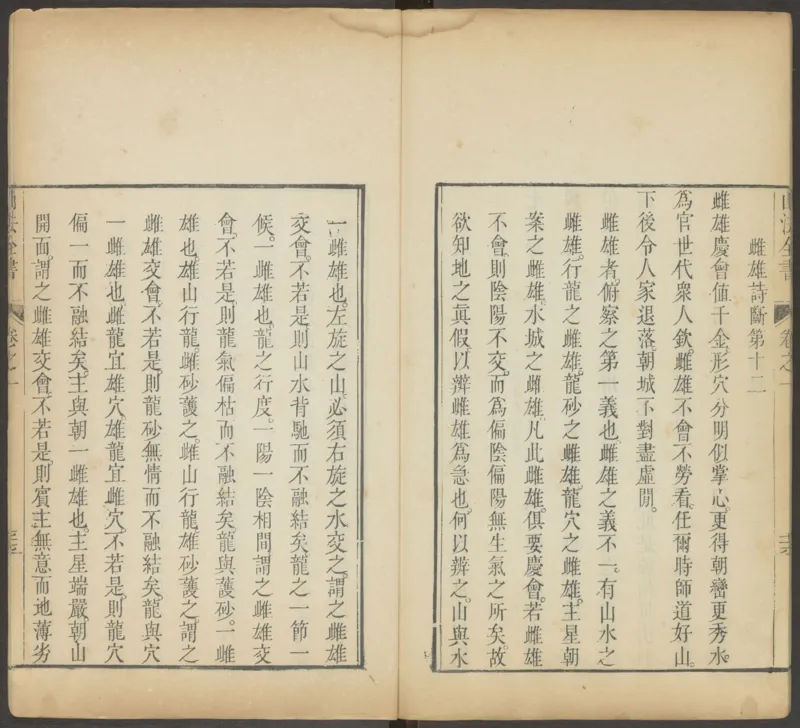 雌雄詩斷第十二
雌雄慶會値千金。形穴分明似掌心。更得朝巒更秀水。
爲官世代衆人欽。雌雄不會不勞看。任爾時師道好山。
下後令人家退落朝城不對盡虛閒。
雌雄者。俯察之第一義也。雌雄之義不一。有山水之
雌雄。行龍之雌雄。龍砂之雌雄。龍穴之雌雄。主星朝
案之雌雄。水城之雌雄。凡此雌雄。俱要慶會。若雌雄
不會。則陰陽不交。而爲偏陰偏陽無生氣之所矣。故
欲知地之眞假。以辨雌雄爲急也。何以辨之。山與水
一雌雄也。左旋之山。必須右旋之水交之。謂之雌雄
交會。不若是。則山水背馳而不融結矣。龍之一節一
候。一雌雄也。龍之行度。一陽一陰相間謂之雌雄交
會。不若是。則龍氣偏枯而不融結矣。龍與護砂。一雌
雄也。雄山行龍雌砂護之。雌山行龍雄砂護之。謂之
雌雄交會。不若是。則龍砂無情而不融結矣。龍與穴
一雌雄也。雌龍宜雄穴。雄龍宜雌穴。不若是。則龍穴
偏一而不融結矣。主與朝一雌雄也。主星端嚴。朝山
開面。謂之雌雄交會。不若是則賓主無意而地薄劣
全書
卷之一